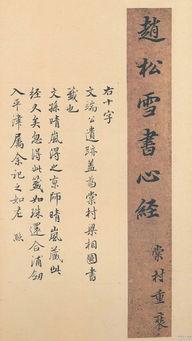 趙松雪書心經
棠村重裝
右十字
文端公遺跡蓋為棠村梁相國書
籤也
文孫晴嵐得之京師晴嵐藏此
經久矣忽得此籤如珠還合浦劍
入平津屬余記之如左